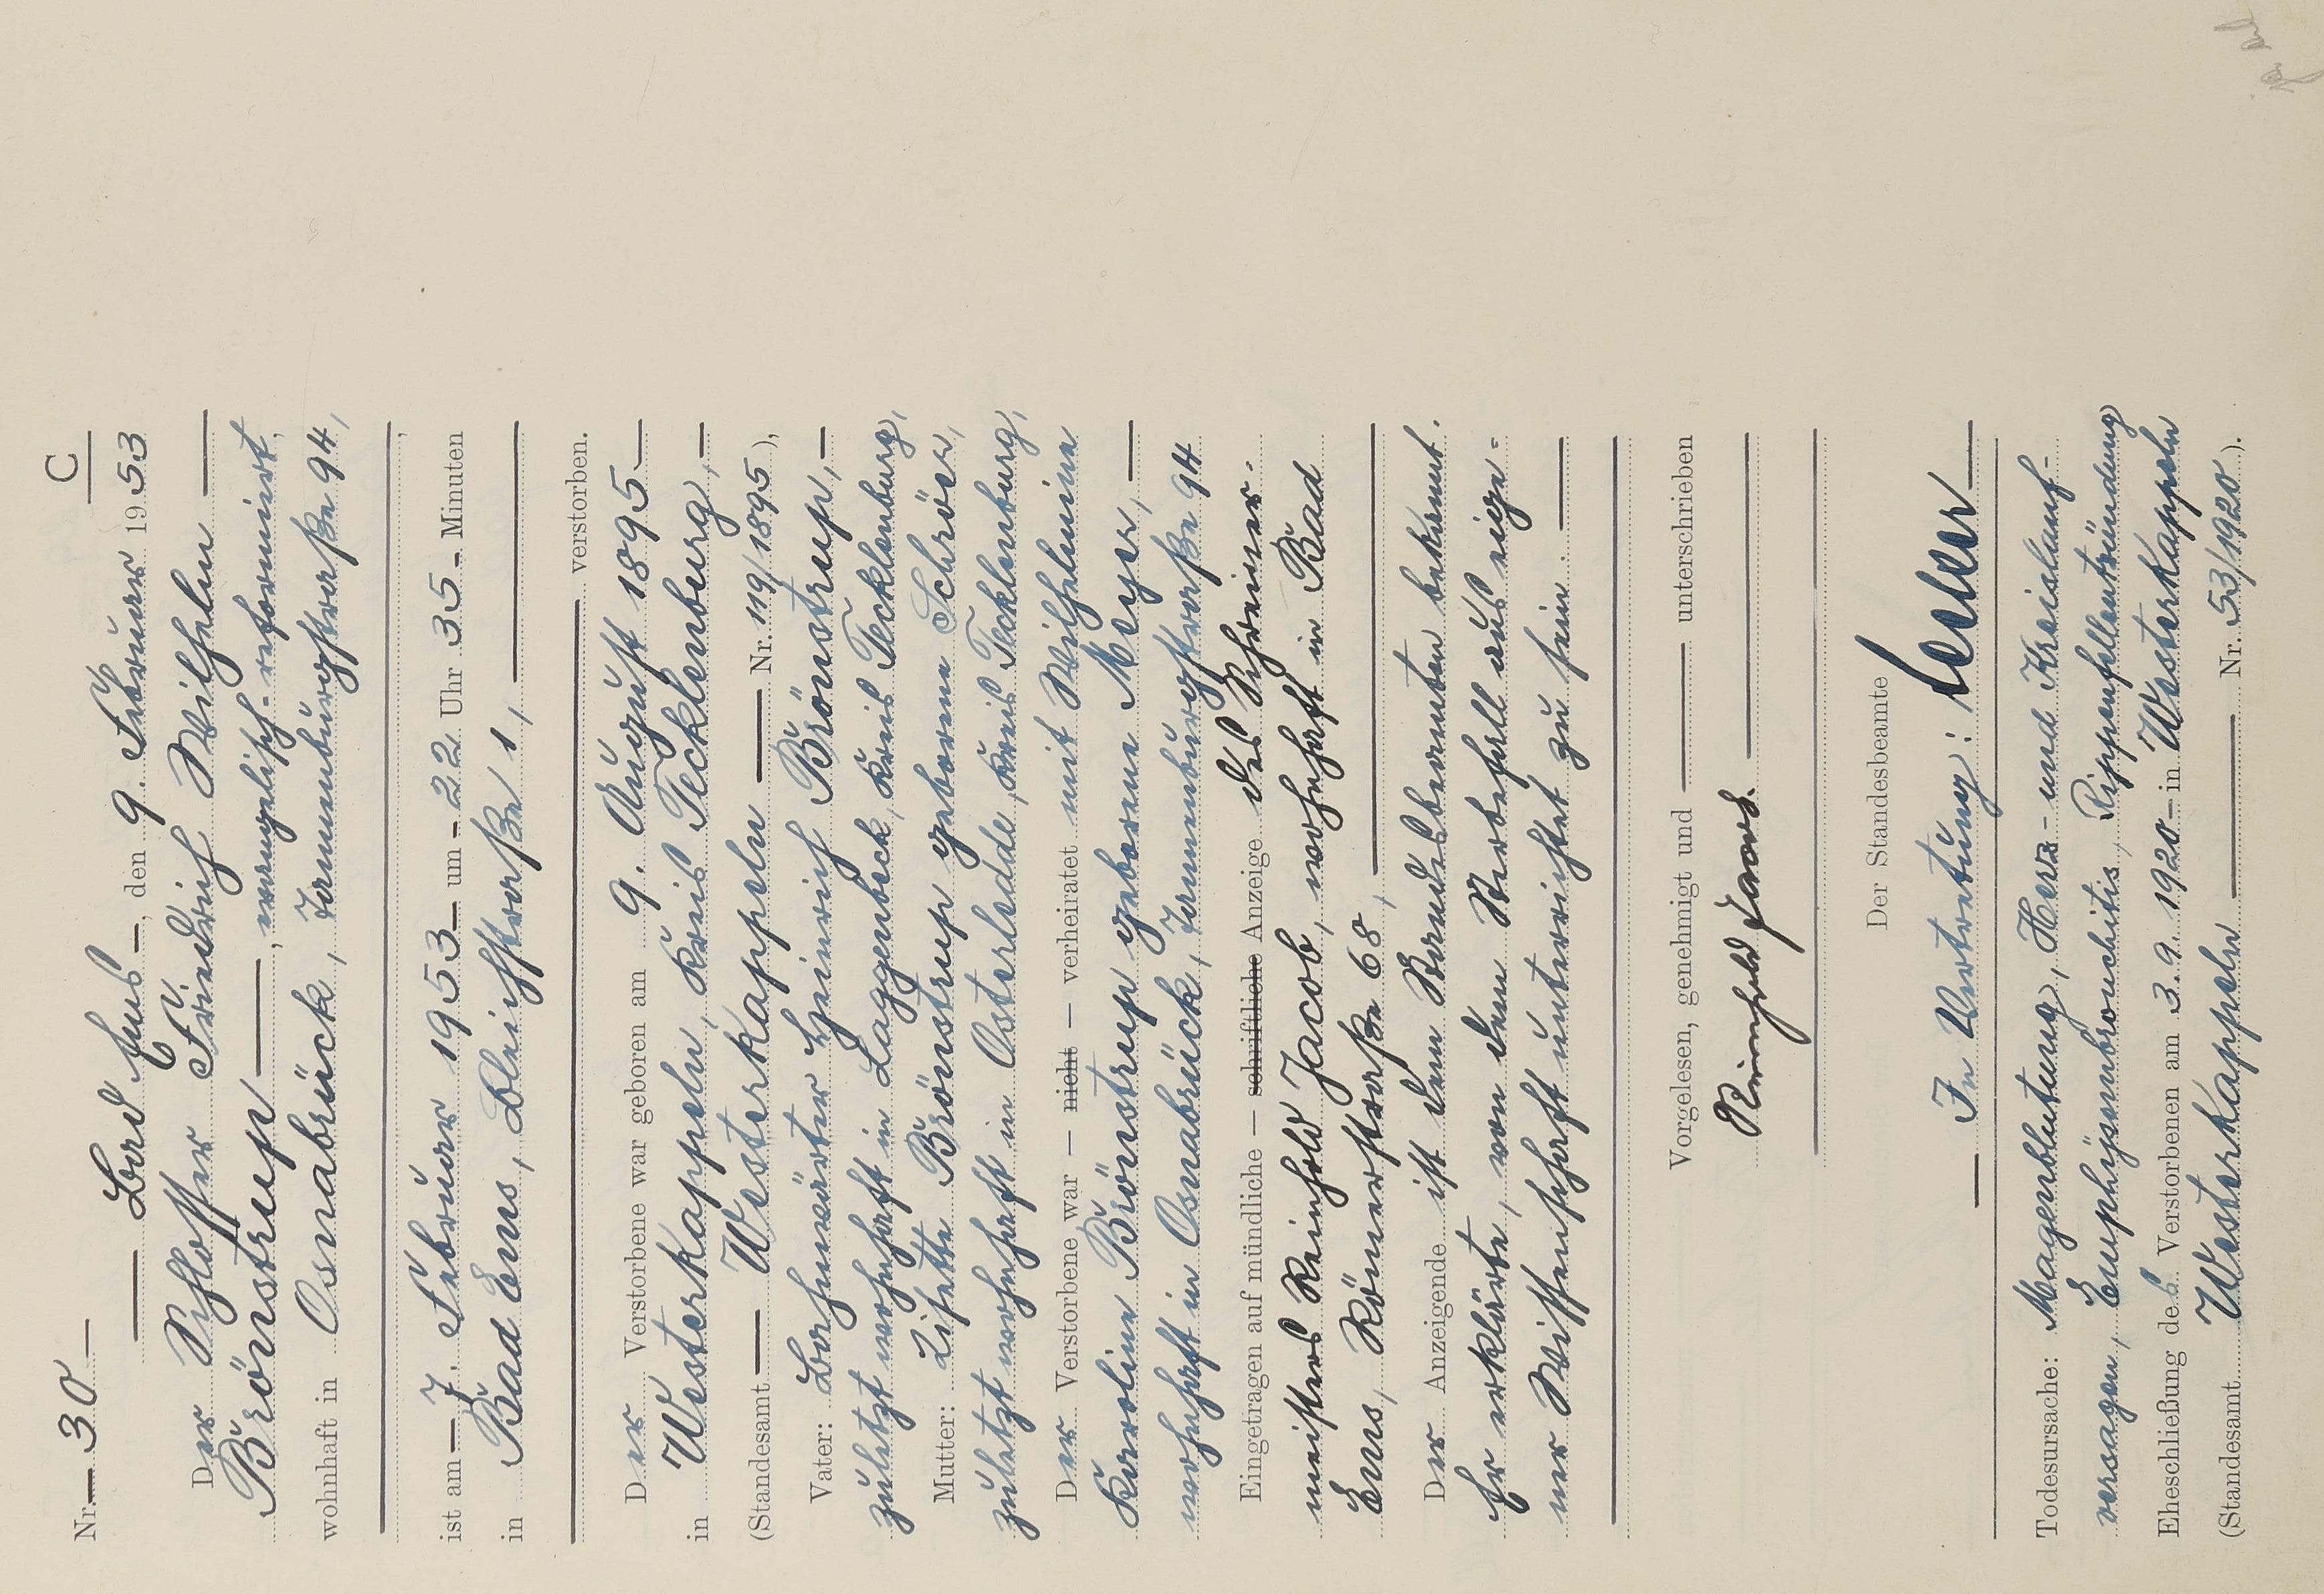 Nr. 30
C
Bad Ems, den 9. Februar 1953
Der Schlosser Friedrich Wilhelm
Brönstrup, evangelisch-reformiert,
wohnhaft in Osnabrück, Iremnbürgstraße 94,
ist am 7. Februar 1953 um 22 Uhr 35 Minuten
in Bad Ems, Bleichstraße 1,
verstorben.
Der Verstorbene war geboren am 9. August 1895
in Westerkappeln, Kreis Tecklenburg,
(Standesamt Westerkappeln Nr. 119/1895),
Vater: Bahnwärter Heinrich Brönstrup,
zuletzt wohnhaft in Laggenbeck, Kreis Tecklenburg,
Mutter: Lisette Brönstrup geborene Schröer,
zuletzt wohnhaft in Osterledde, Kreis Tecklenburg,
Der Verstorbene war — nicht — verheiratet mit Wilhelmine
Karoline Brönstrup geborene Meyer,
wohnhaft in Osnabrück, Iremnbürgstraße 94
Eingetragen auf mündliche — schriftliche Anzeige des Schreiner-
meisters Reinhold Jacob, wohnhaft in Bad
Ems, Römerstraße 68,
Der Anzeigende ist dem Standesbeamten bekannt.
Er erklärte, von dem Sterbefall aus eige-
ner Wissenschaft unterrichtet zu sein.
Vorgelesen, genehmigt und unterschrieben
Reinhold Jacob.
Der Standesbeamte
In Vertretung:
Todesursache: Magenblutung, Herz- und Kreislauf-
versagen, Emphysembronchitis, Rippenfellentzündung
Eheschließung des Verstorbenen am 3.9.1920 in Westerkappeln
(Standesamt Westerkappeln Nr. 53/1920).